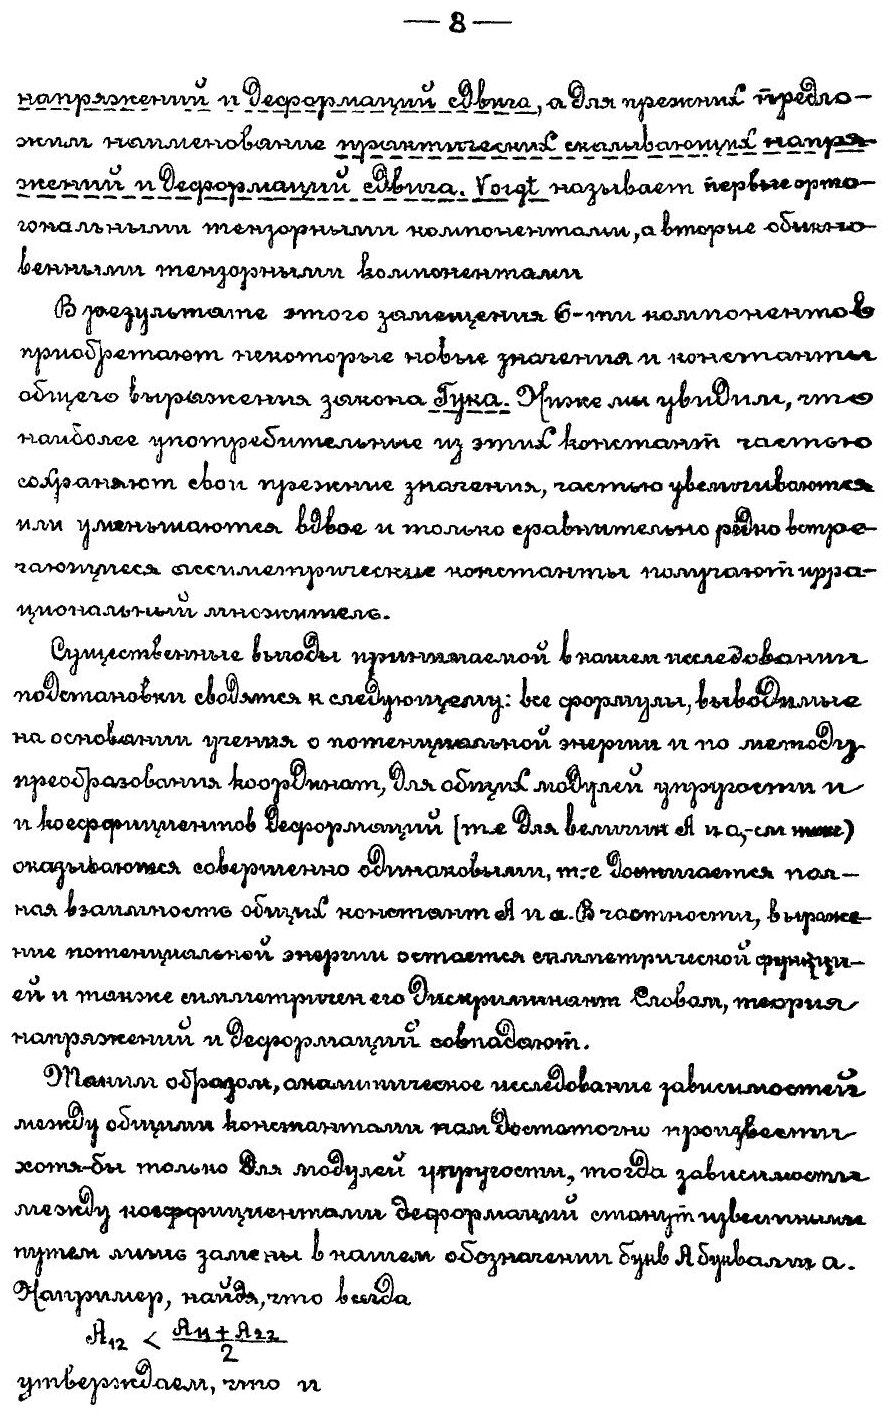 — 8 —
напряжений и деформаций сдвига, а для прежних предло-
жим наименование практических скалывающих напря-
жений и деформаций сдвига. Voigt называет первые орто-
гональными тензорными компонентами, а вторые обыкно-
венными тензорными компонентами
В результате этого замещения 6-ти компонентов
приобретают некоторые новые значения и константы
общего выражения закона Гука. Ниже мы увидим, что
наиболее употребительные из этих констант частью
сохраняют свои прежние значения, частью увеличиваются
или уменьшаются вдвое и только сравнительно редко встре-
чающиеся ассиметрические константы получают ирра-
циональный множитель.
Существенные выгоды принимаемой в нашем исследовании
подстановки сводятся к следующему: все формулы, выводимые
на основании учения о потенциальной энергии и по методу
преобразования координат, для общих модулей упругости и
и коеффициентов деформаций [т.е для величин А и а,-см ниже)
оказываются совершенно одинаковыми, т-е достигается пол-
ная взаимность общих констант А и а. В частности, выраже-
ние потенциальной энергии остается симметрической функци-
ей и также симметричен его дискриминант Словом, теория
напряжений и деформаций совпадают.
Таким образом, аналитическое исследование зависимостей
между общими константами нам достаточно произвести
хотя-бы только для модулей упругости, тогда зависимости
между коеффициентами деформаций станут известными
путем лишь замены в нашем обозначении букв А буквами а.
Например, найдя, что всегда
A₁₂ < (A₁₁ + A₂₂)/2
утверждаем, что и